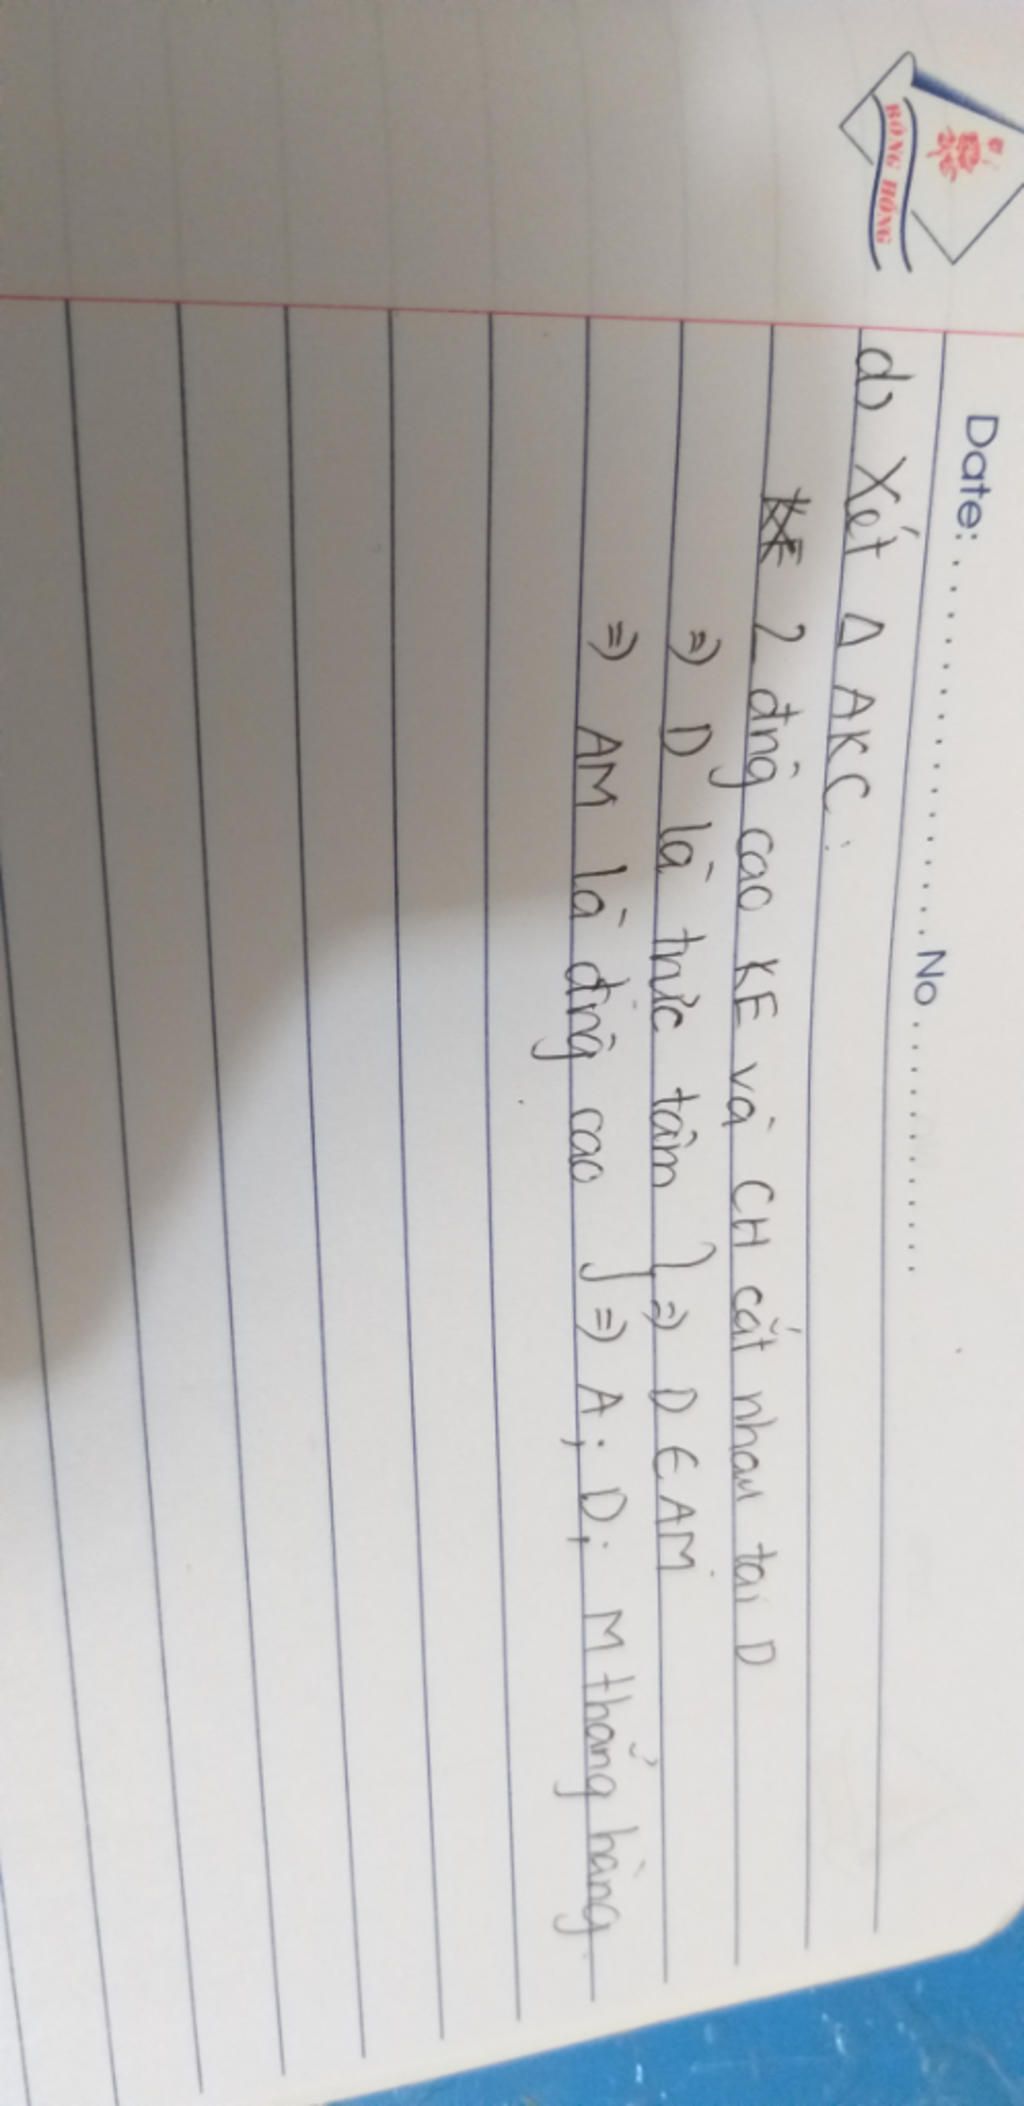 BÔNG HỒNG
Date: .......................... No ....................
d) Xét Δ AKC:
2 đng̀ cao KE và CH cắt nhau tại D
=> D là trực tâm } => D ∈ AM
=> AM là đng̀ cao } => A; D; M thẳng hàng.